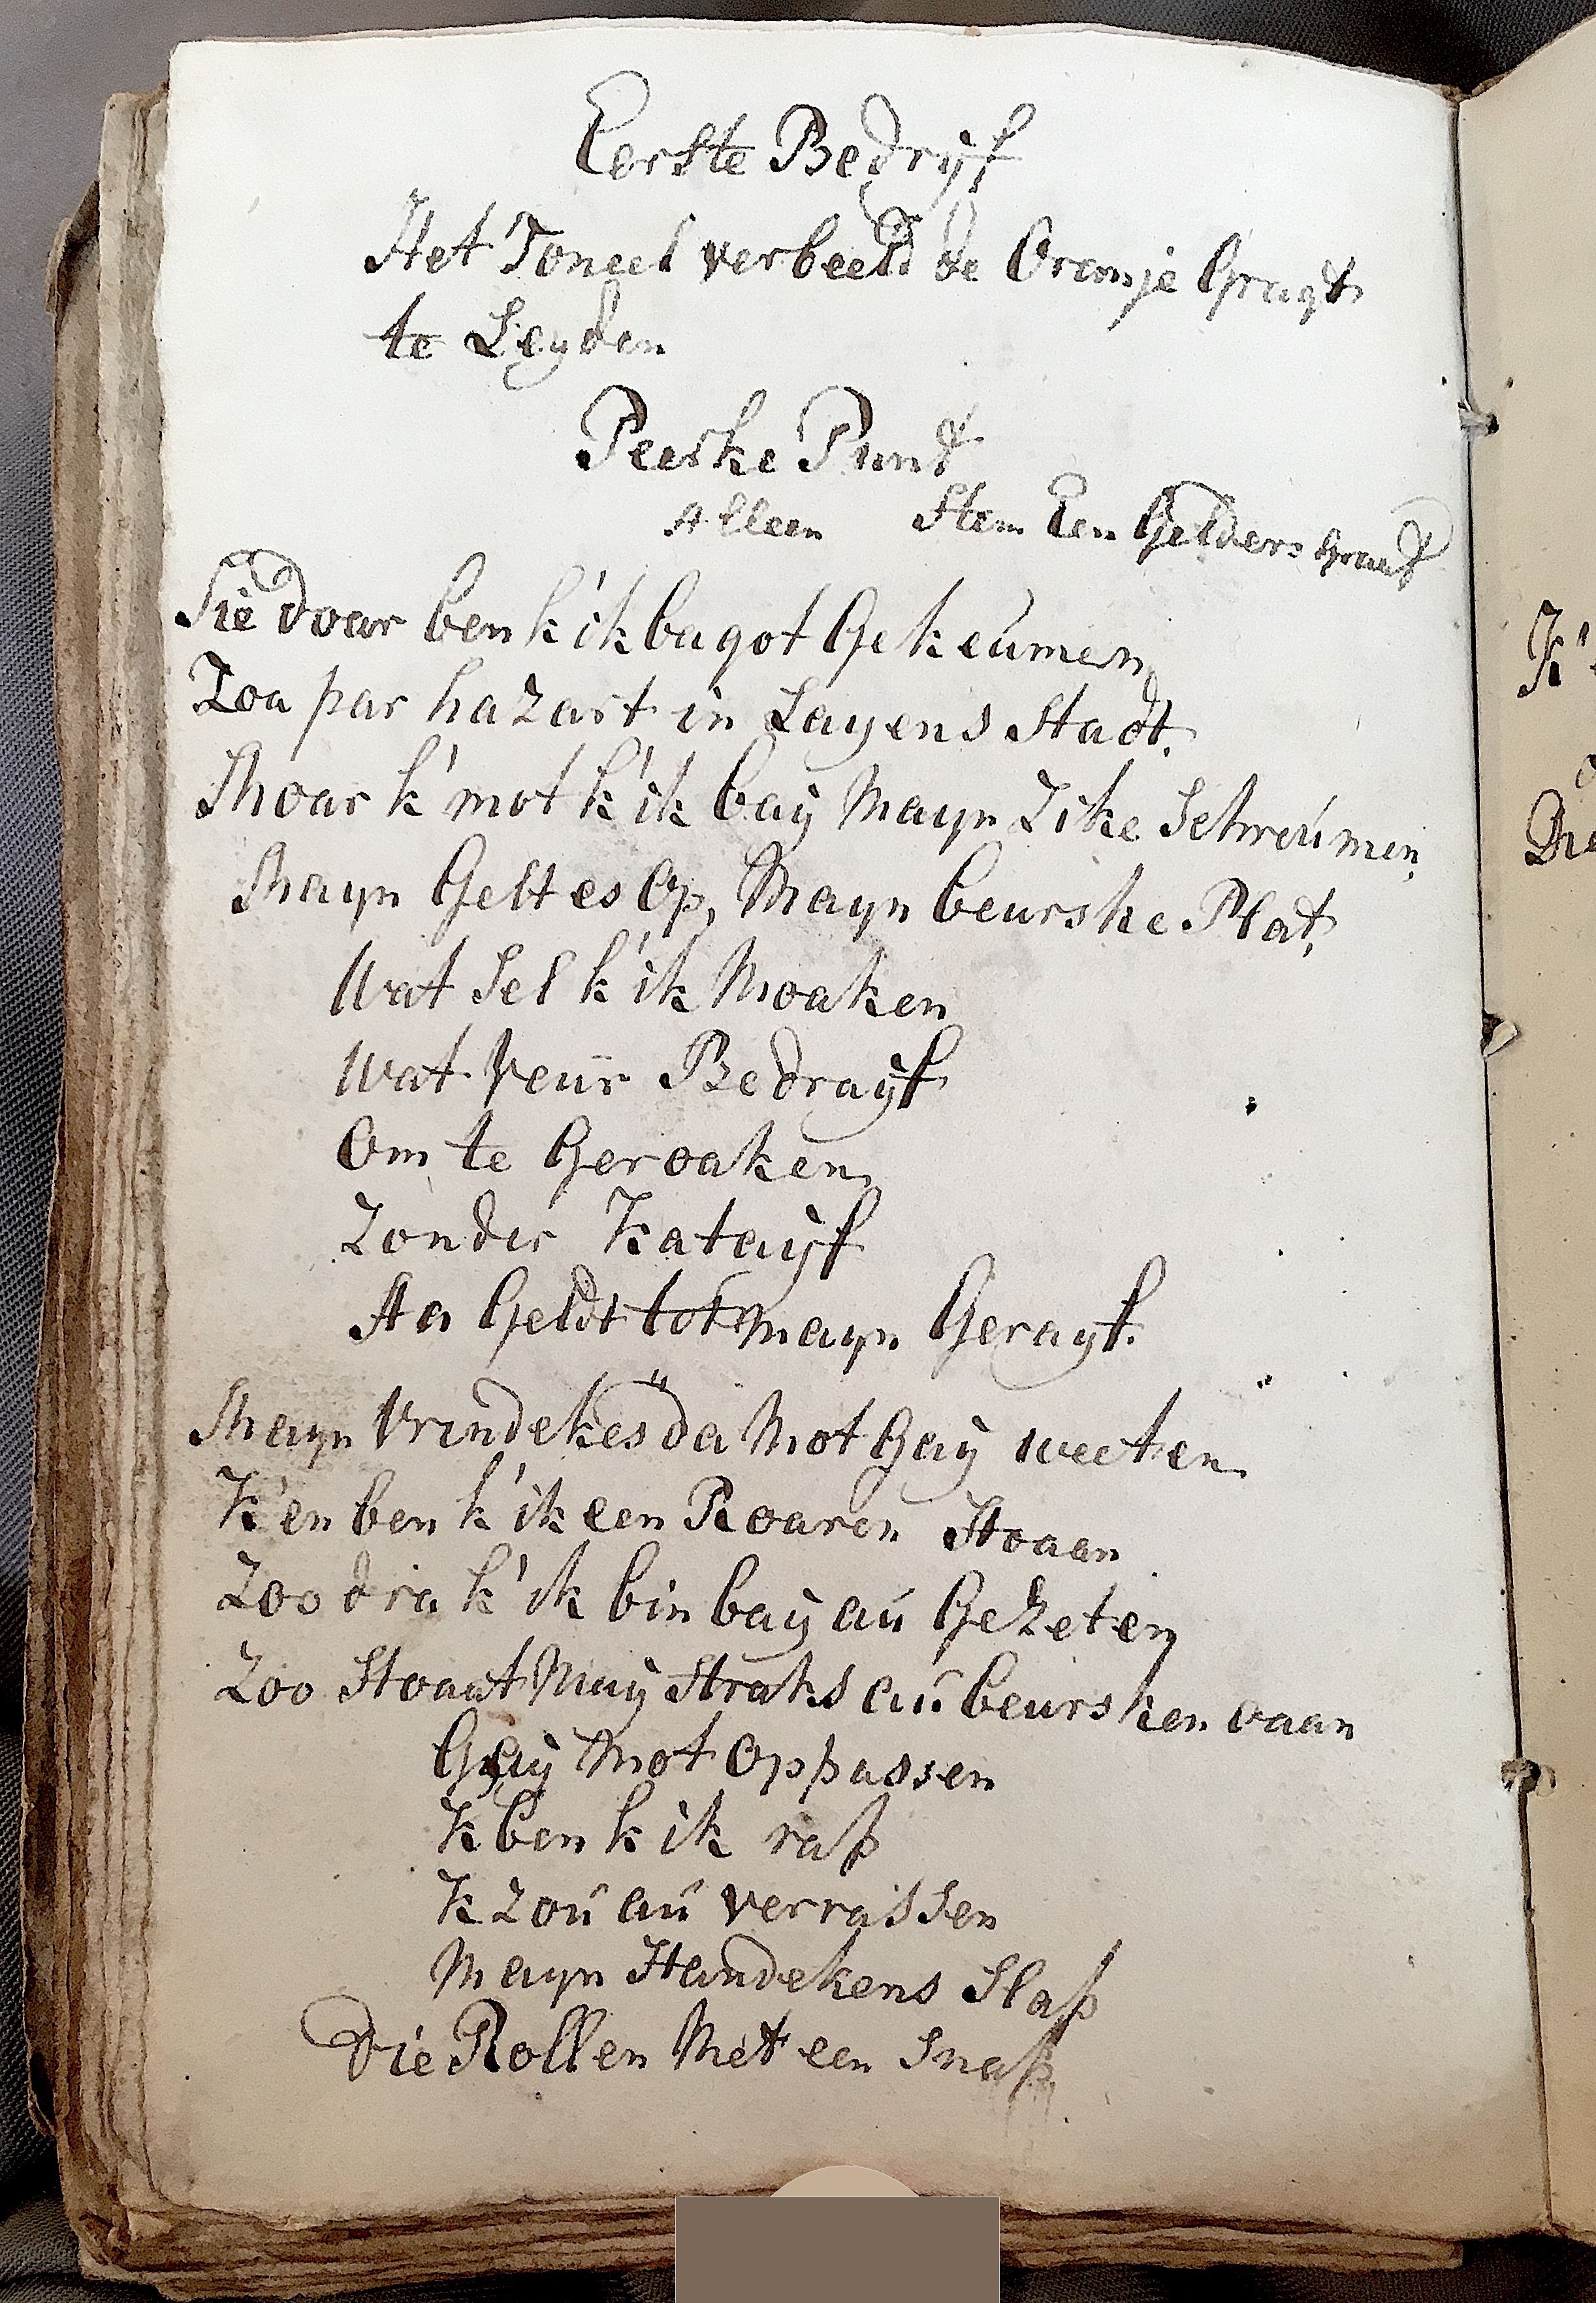 Eerste Bedryf
Het Toneel verbeeld de Oranje Gragt
te Leyden
Peerke Punt
Alleen Stem Een Gelders Graaf
Sie doar ben k'ik bagot Gekeúmen,
Zoa par hazart in Layens Stadt.
Moar k'mot k'ik baÿ Mayn Zike Schreúmen,
Mayn Gelt es Op, Mayn beurske Plat,
Wat Sel k'ik Moaken
Wat Veür Bedraÿf
Om te Geroaken,
Zonder Kataÿf
Aa Geldt tot mayn Gerayf.
Mayn Vrindekes da Mot Gaÿ weeten
K'en ben k'ik een Roaren Hoaan
Zoo dra k'ik bin baÿ aú Gezeten
Zoo Stoaat Maÿ Straks aú beursken oaan
Gaÿ Mot Oppassen
K ben k ik raß
K zoú aú verrassen
Mayn Handekens Slaß
Die Rollen Met een Snaß
K'
Die